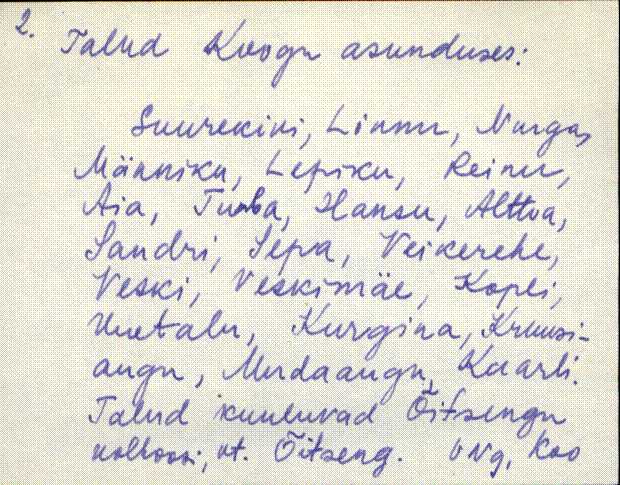 2.
Talud Koogu asunduses:
Suurekivi, Linnu, Nurga,
Männiku, Lepiku, Reinu,
Aia, Turba, Hansu, Alttoa,
Sandri, Sepa, Veikerehe,
Veski, Veskimäe, Kopli,
Uuetalu, Kurgina, Kruusi-
augu, Mudaaugu, Kaarli.
Talud kuuluvad Õitsengu
kolhoosi, vt. Õitseng. VNg, Koo